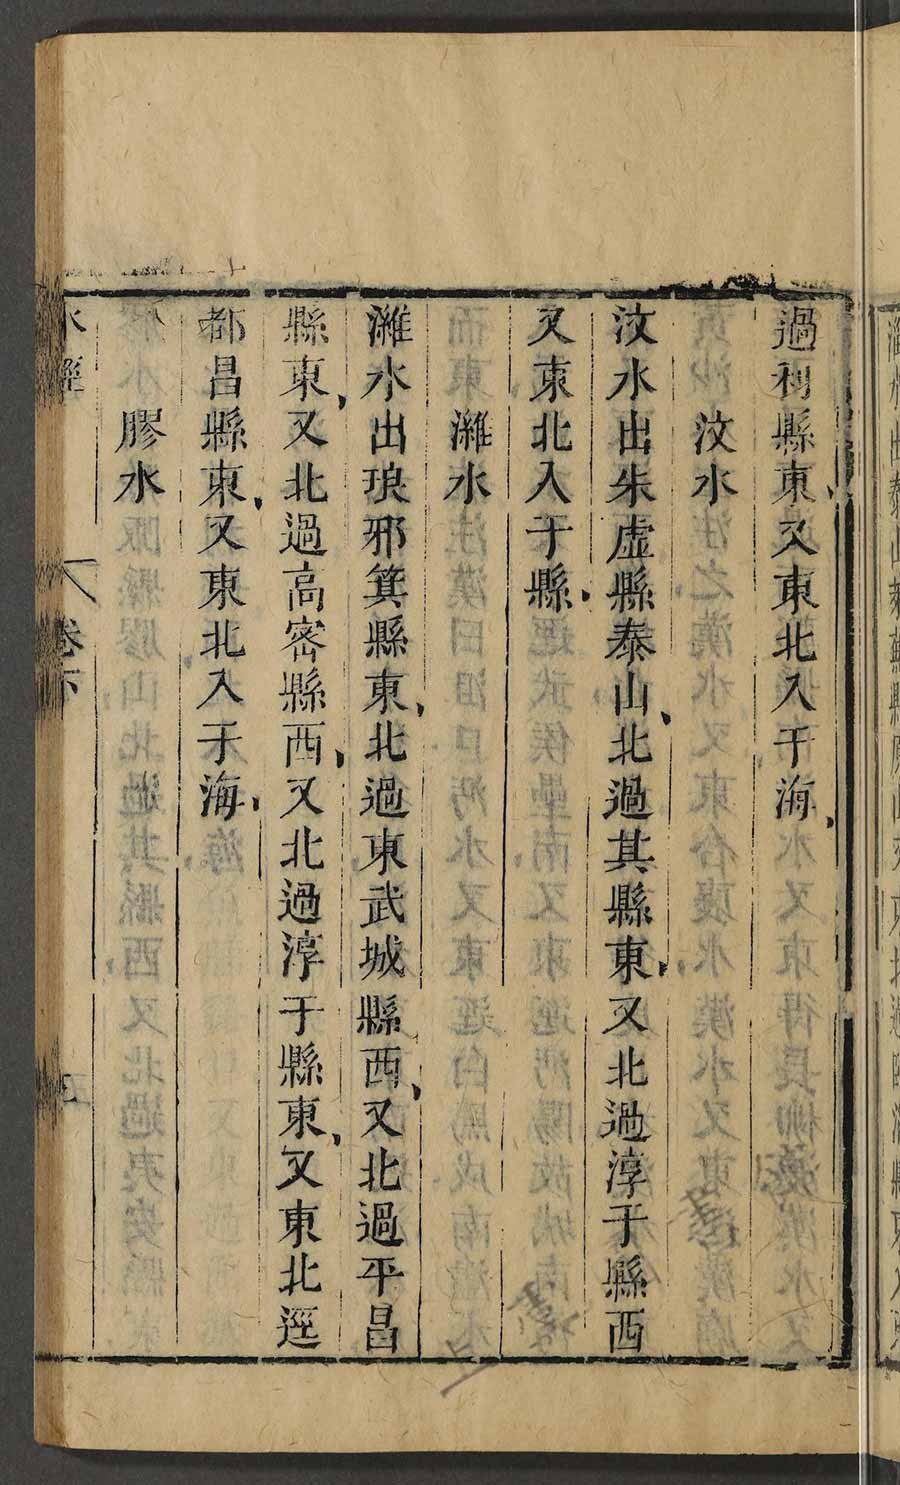 過利縣東又東北入于海
汶水
汶水出朱虛縣泰山北過其縣東又北過淳于縣西
又東北入于縣
濰水
濰水出琅邪箕縣東北過東武城縣西又北過平昌
縣東又北過高密縣西又北過淳于縣東又東北逕
都昌縣東又東北入于海
膠水
水經 卷下